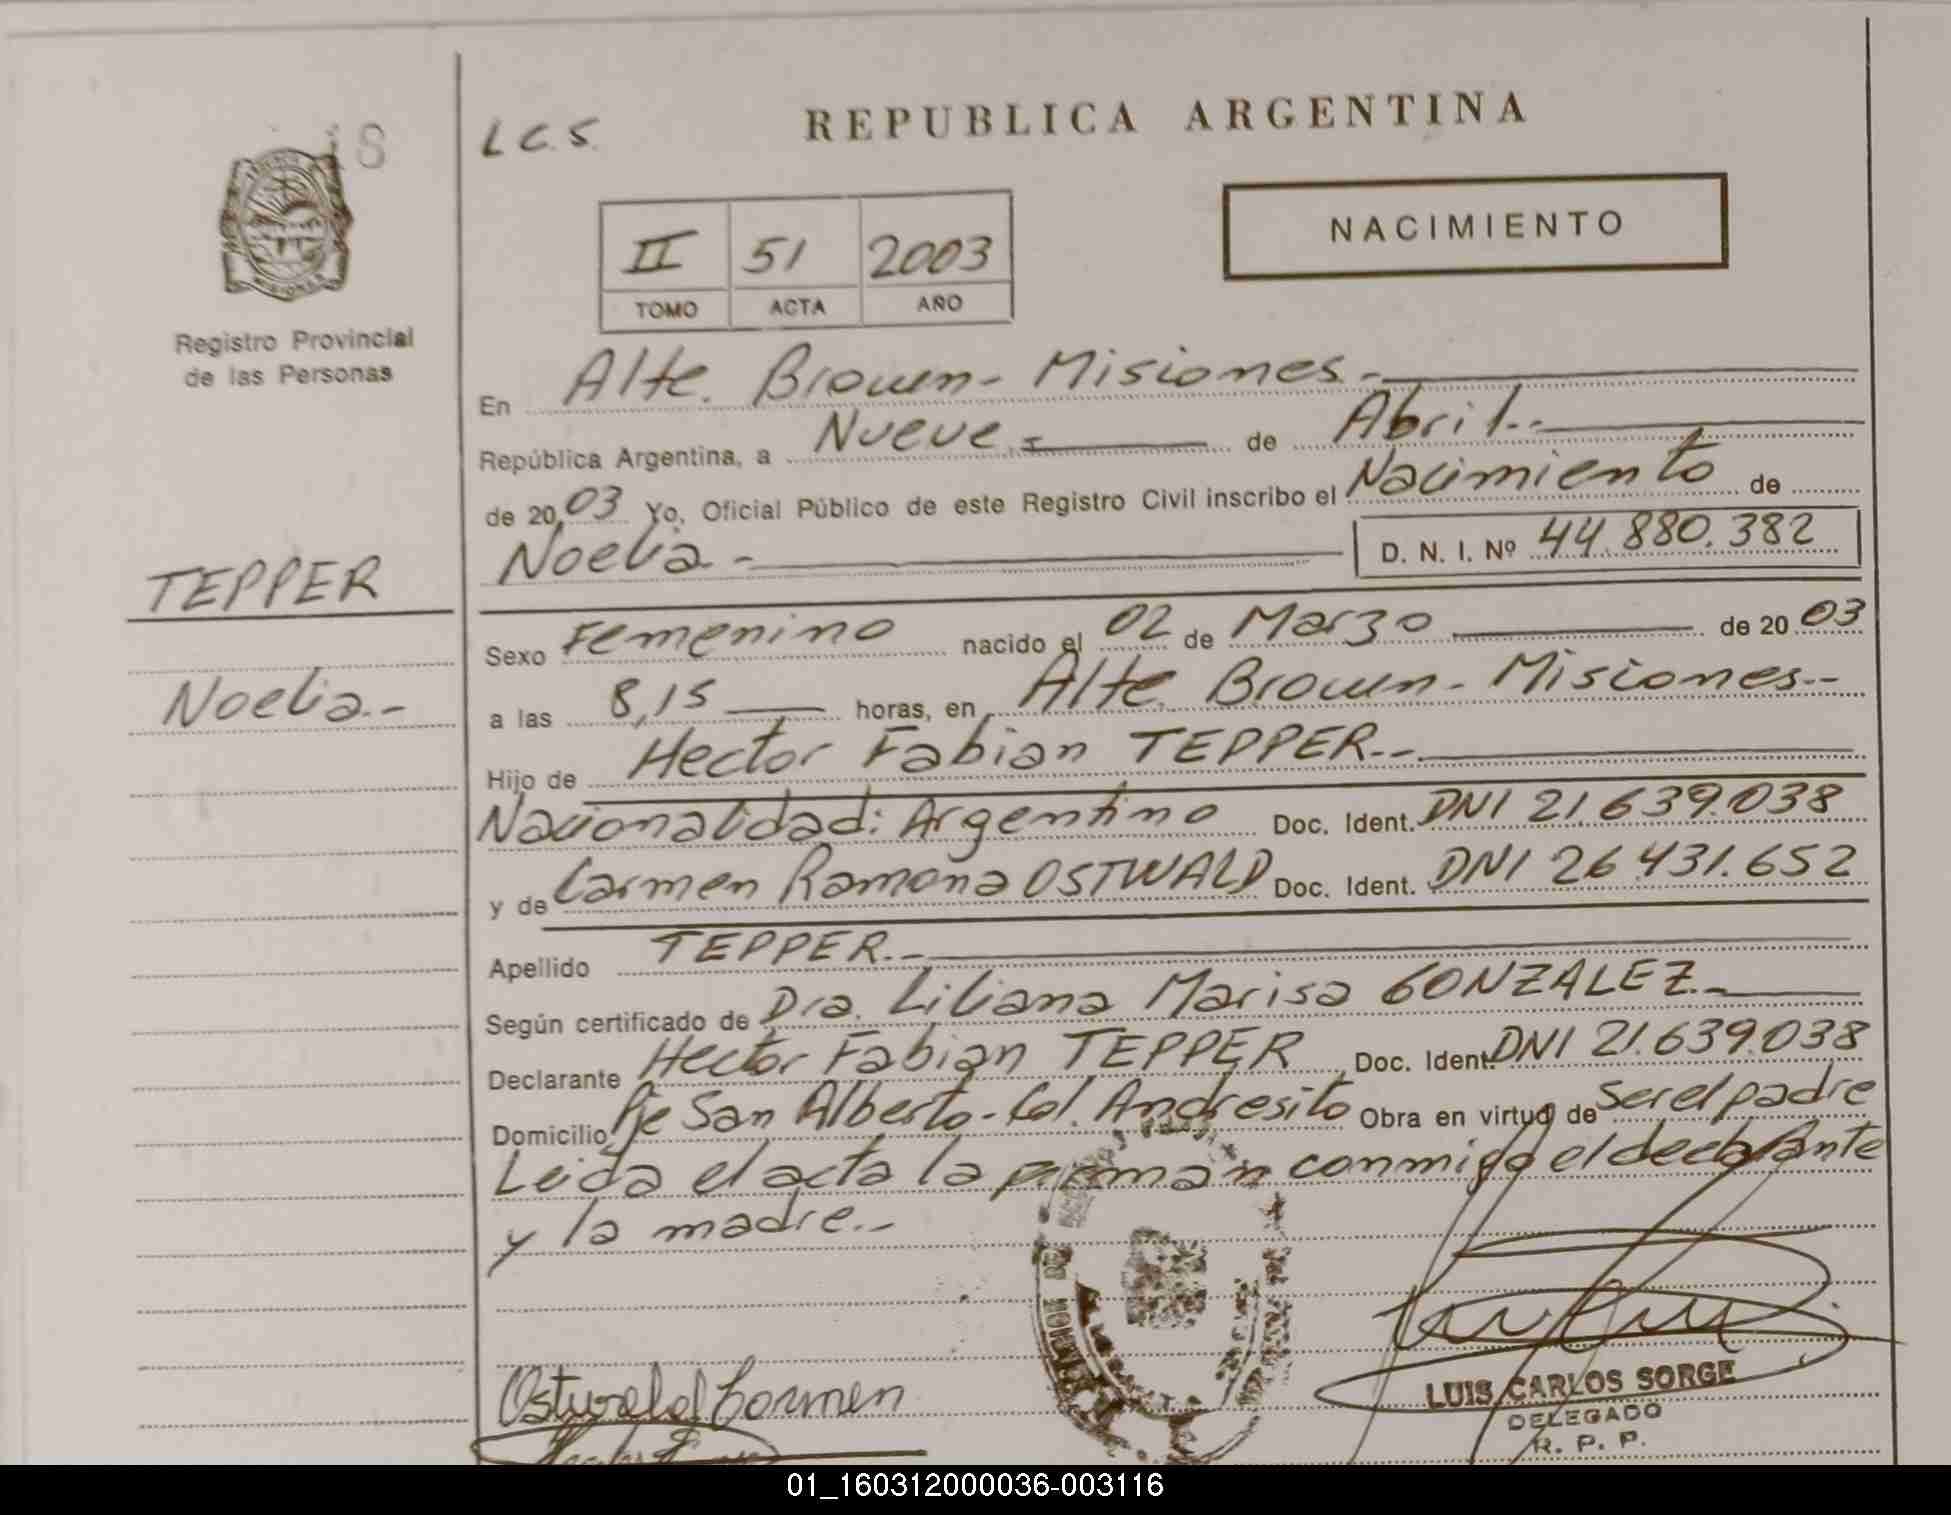 18
L C. S.
REPUBLICA ARGENTINA
NACIMIENTO
II 51 2003
TOMO ACTA AÑO
MISIONES
Registro Provincial
de las Personas
En Alte. Brown - Misiones.-
República Argentina, a Nueve.- de Abril.-
de 2003 Yo, Oficial Público de este Registro Civil inscribo el Nacimiento de
Noelia.- D. N. I. Nº 44.880.382
TEPPER
Noelia.-
Sexo Femenino nacido el 02 de Marzo de 2003
a las 8,15 horas, en Alte. Brown - Misiones.-
Hijo de Hector Fabian TEPPER.-
Nacionalidad: Argentino Doc. Ident. DNI 21.639.038
y de Carmen Ramona OSTWALD Doc. Ident. DNI 26.431.652
Apellido TEPPER.-
Según certificado de Dra. Liliana Marisa GONZALEZ.-
Declarante Hector Fabian TEPPER Doc. Ident. DNI 21.639.038
Domicilio Pje San Alberto - Col. Andresito Obra en virtud de ser el padre
Leida el acta la firman conmigo el declarante
y la madre.-
Ostwald Carmen
LUIS CARLOS SORGE
DELEGADO
R. P. P.
01_160312000036-003116